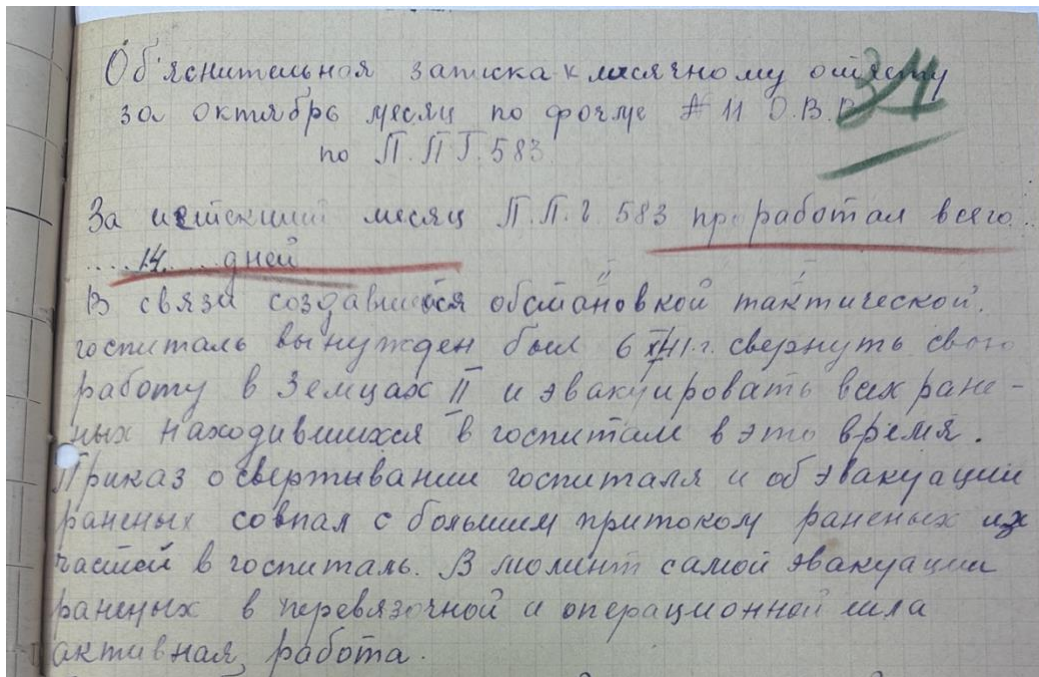 Об'яснительная записка к месячному отчету
34
за октябрь месяц по форме № 11 О.В.В.
по П.П.Г. 583
За истекший месяц П.П.Г. 583 проработал всего..
....14.... дней
В связи создавшейся обстановкой тактической.
госпиталь вынужден был 6 X 41.г. свернуть свою
работу в Земцах II и эвакуировать всех ране-
ных находившихся в госпитале в это время.
Приказ о свертывании госпиталя и об эвакуации
раненых совпал с большим притоком раненых из
частей в госпиталь. В момент самой эвакуации
раненых в перевязочной и операционной шла
активная работа.